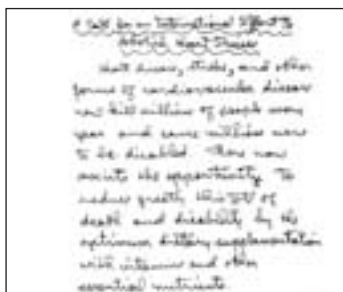 A Call for an International Effort To
Abolish Heart Disease
Heart disease, stroke, and other
forms of cardiovascular disease
now kill millions of people every
year and cause millions more
to be disabled. There now
exists the opportunity to
reduce greatly this toll of
death and disability by the
optimum dietary supplementation
with vitamins and other
essential nutrients.